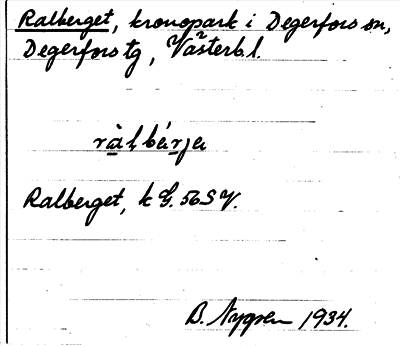 Ralberget, kronopark i Degerfors sn,
Degerfors tg, Västerb l.
ràlbærja
Ralberget, k G. 56 S V.
B. Nygren 1934.